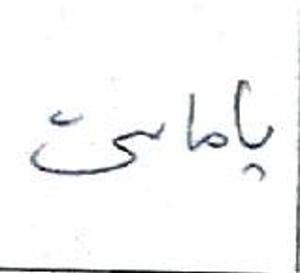 یا ماست